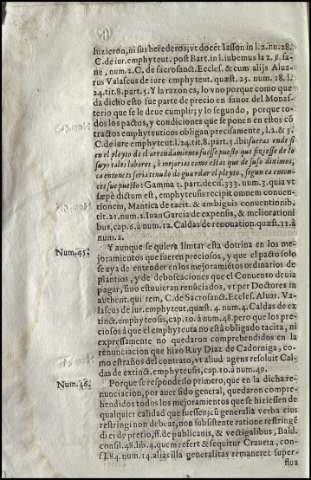 hizieron, ni sus herederos, vt docet Iasson. in l. 2. nu. 28.
C. de iur. emphyteut. post Bart. in l. iubemus la 2. §. sa-
ne, num. 2. C. de sacrosanct. Eccles. & cum alijs Alua-
rus Valascus de iure emphyteut. quæst. 25. num. 28. l.
24. tit. 8. part. 5. Y la razon es, lo vno porque como que-
da dicho esto fue parte de precio en fauor del Monas-
terio que se le deue cumplir; y lo segundo, porque to-
dos los pactos, y condiciones que se ponen en estos cõ
tractos emphyteuticos obligan precisamente, l. 2. & 3.
C. de iure emphyteut. l. 24. tit. 8. part. 5. ibi: fueras ende si
en el pleyto de el arrendamiento fuesse puesto que fiziesse de lo
suyo tales labores, ò mejorias como estas que de suso diximos,
ca entonces seria tenudo de guardar el pleyto, segun en
fue puesto: Gamma 1. part. decis. 333. num. 7. quia vt
sæpè dictum est, emphyteusis recipit omnem conuen-
tionem, Mantica de tacit. & ambiguis conuentionib.
tit. 21. num. 2. Ioan Garcia de expensis, & meliorationi
bus, cap. 6. à num. 12. Caldas de renouation. quæst. 11. à
num. 2.
Num. 45. Y aunque se quiera limitar esta dotrina en los me-
joramientos que fueren preciosos, y que el pacto solo
se aya de entender en los mejoramientos ordinarios de
plantios, y de desfocaciones que el Conuento deuia
pagar, sino estuuieran renunciados, vt per Doctores in
authent. qui rem, C. de Sacrosanct. Eccles. Aluar. Va-
lascus de iur. emphyteut. quæst. 4. num. 4. Caldas de ex-
tinct. emphyteusis, cap. 10. à num. 48. pero que los pre-
ciosos à que el emphyteuta no està obligado tacita, ni
expressamente no quedaron comprehendidos en la
renunciacion que hizo Ruy Diaz de Cadorniga, co-
mo estraños del contrato, vt aliud agens resoluit Cal-
das de extinct. emphyteusis, cap. 10. à num. 49.
Num. 46. Porque se responde lo primero, que en la dicha re-
nunciacion, por auer sido general, quedaron compre-
hendidos todos los mejoramientos que se hiziessen de
qualquier calidad que fuessen; cũ generalia verba eius
restringi non debeat, non subsistente ratione restringẽ
di ei de pretio, ff. de publicanis, & vectigalibus, Bald.
consil. 48. lib. 4. quem refert & sequitur Craueta, con-
sil. 84. num. 14. alias illa generalitas remaneret super-
flua